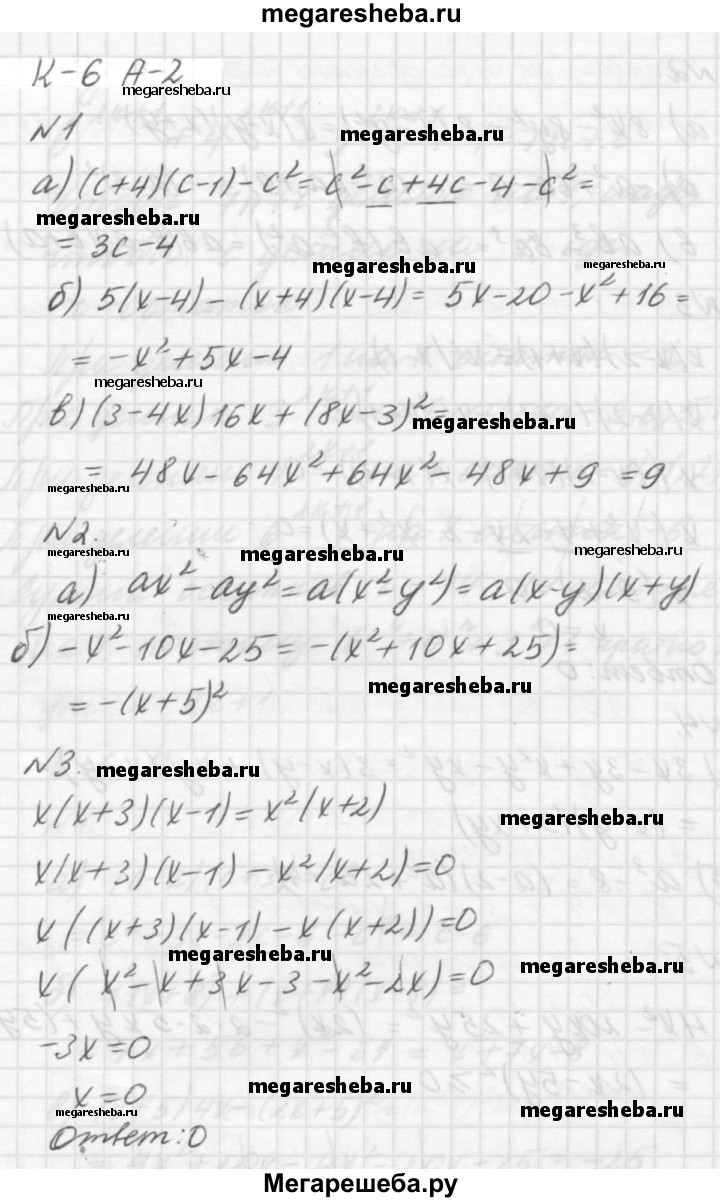 megaresheba.ru
К-6 А-2
megaresheba.ru
№1
megaresheba.ru
а) (c+4)(c-1)-c²=c²-c+4c-4-c²=
megaresheba.ru
=3c-4
megaresheba.ru
megaresheba.ru
б) 5(x-4)-(x+4)(x-4)= 5x-20-x²+16=
=-x²+5x-4
megaresheba.ru
в) (3-4x)16x+(8x-3)²=
megaresheba.ru
= 48x-64x²+64x²-48x+9 =9
megaresheba.ru
№2.
megaresheba.ru
megaresheba.ru
megaresheba.ru
а) ax²-ay²=a(x²-y²)=a(x-y)(x+y)
megaresheba.ru
б) -x²-10x-25=-(x²+10x+25)=
megaresheba.ru
=-(x+5)²
№3.
megaresheba.ru
x(x+3)(x-1)=x²(x+2)
megaresheba.ru
x(x+3)(x-1)-x²(x+2)=0
x((x+3)(x-1)-x(x+2))=0
megaresheba.ru
megaresheba.ru
x(x²-x+3x-3-x²-2x)=0
-3x=0
x=0
megaresheba.ru
megaresheba.ru
megaresheba.ru
Ответ:0
Мегарешеба.ру